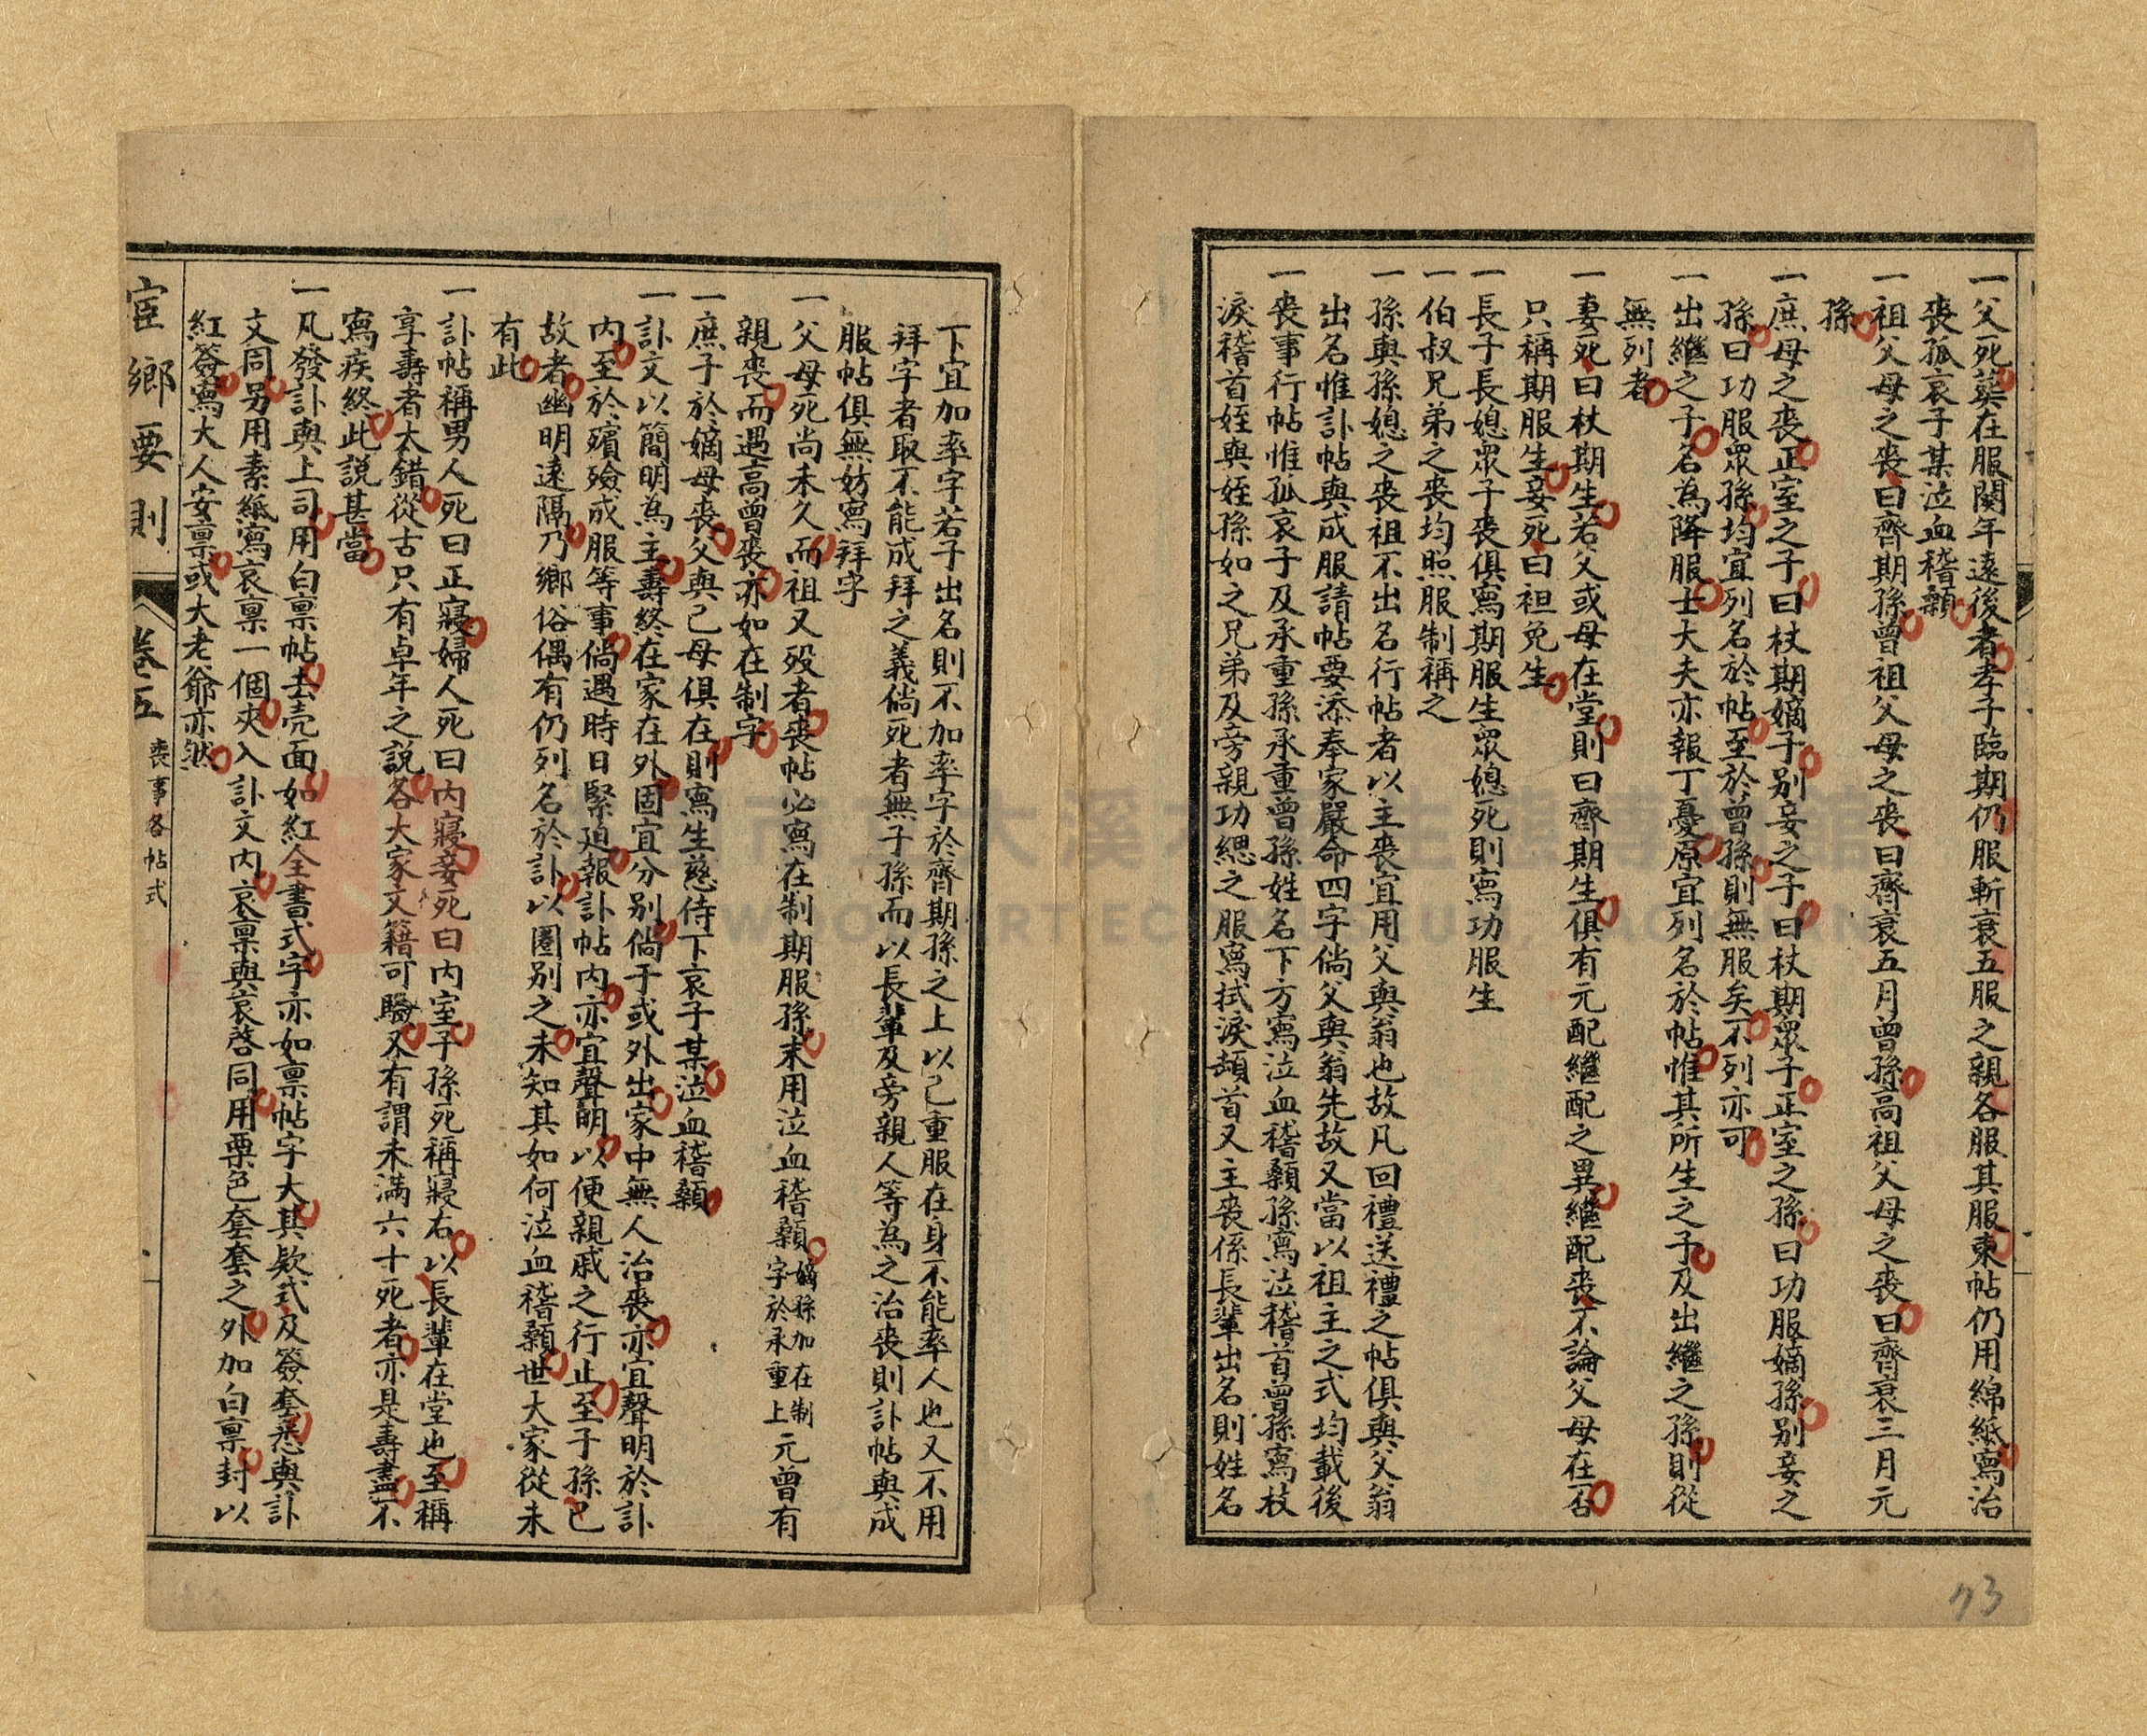 一父死葬在服闋年遠後者孝子臨期仍服斬衰五服之親各服其服柬帖仍用綿紙寫治
喪孤哀子某泣血稽顙
一祖父母之喪曰齊期孫曾祖父母之喪曰齊衰五月曾孫高祖父母之喪曰齊衰三月元
孫
一庶母之喪正室之子曰杖期嫡子別妾之子曰杖期眾子正室之孫曰功服嫡孫別妾之
孫曰功服眾孫均宜列名於帖至於曾孫則無服矣不列亦可
一出繼之子名為降服士大夫亦報丁憂原宜列名於帖惟其所生之子及出繼之孫則從
無列者
一妻死曰杖期生若父或母在堂則曰齊期生俱有元配繼配之異繼配喪不論父母在否
只稱期服生妾死曰袒免生
一長子長媳眾子喪俱寫期服生眾媳死則寫功服生
一伯叔兄弟之喪均照服制稱之
一孫與孫媳之喪祖不出名行帖者以主喪宜用父與翁也故凡回禮送禮之帖俱與父翁
出名惟訃帖與成服請帖要添奉家嚴命四字倘父與翁先故又當以祖主之式均載後
一喪事行帖惟孤哀子及承重孫承重曾孫姓名下方寫泣血稽顙孫寫泣稽首曾孫寫抆
淚稽首姪與姪孫如之兄弟及旁親功緦之服寫拭淚頓首又主喪係長輩出名則姓名
下宜加率字若子出名則不加率字於齊期孫之上以己重服在身不能率人也又不用
拜字者取不能成拜之義倘死者無子孫而以長輩及旁親人等為之治喪則訃帖與成
服帖俱無妨寫拜字
一父母死尚未久而祖又歿者喪帖必寫在制期服孫末用泣血稽顙嫡孫加在制字於承重上元曾有
親喪而遇高曾喪亦如在制字
一庶子於嫡母喪父與己母俱在則寫生慈侍下哀子某泣血稽顙
一訃文以簡明為主壽終在家在外固宜分別倘子或外出家中無人治喪亦宜聲明於訃
內至於殯殮成服等事倘遇時日緊迫報訃帖內亦宜聲明以便親戚之行止至子孫已
故者幽明遠隔乃鄉俗偶有仍列名於訃以圈別之未知其如何泣血稽顙世大家從未
有此
一訃帖稱男人死曰正寢婦人死曰內寢妾死曰內室子孫死稱寢右以長輩在堂也至稱
享壽者太錯從古只有卓年之說各大家文籍可驗又有謂未滿六十死者亦是壽盡不
寫疾終此說甚當
一凡發訃與上司用白稟帖去壳面如紅全書式字亦如稟帖字大其欵式及簽套悉與訃
文同另用素紙寫哀稟一個夾入訃文內哀稟與哀啓同用栗色套套之外加白稟封以
紅簽寫大人安稟或大老爺亦然
宦鄉要則
卷五
喪事各帖式
73